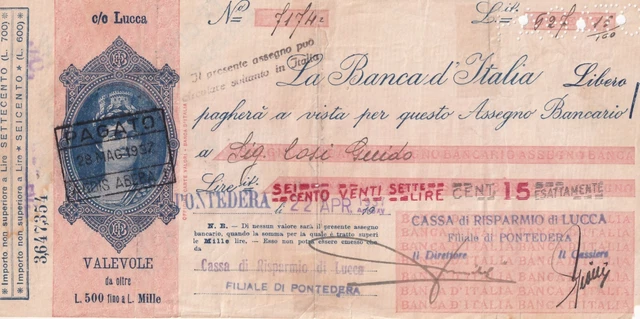 * Importo non superiore a Lire SETTECENTO (L. 700) *
* Importo non superiore a Lire SEICENTO (L. 600) *
3,847,354
c/o Lucca
PAGATO
28 MAG 1937
VALEVOLE
da oltre
L. 500 fino a L. Mille
Nº 7174
L. it. 927.15
/100
Il presente assegno può
circolare soltanto in Italia
La Banca d'Italia Libero
pagherà a vista per questo Assegno Bancario
a Sig. Cosi Guido
BANCARIO
Lire it. SEICENTO VENTI SETTE LIRE CENT. 15 ESATTAMENTE
PONTEDERA 22 APR. 37
N. B. - Di nessun valore sarà il presente assegno
bancario, quando la somma per la quale è tratto superi
le Mille lire. - Esso non potrà essere emesso che
da
Cassa di Risparmio di Lucca
FILIALE DI PONTEDERA
CASSA di RISPARMIO di LUCCA
Filiale di PONTEDERA
Il Direttore
Il Cassiere
BANCA D'ITALIA BANCA D'ITALIA